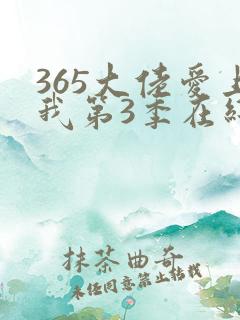 365大佬爱上
我第3季在线
抹茶曲奇
未经同意禁止转载